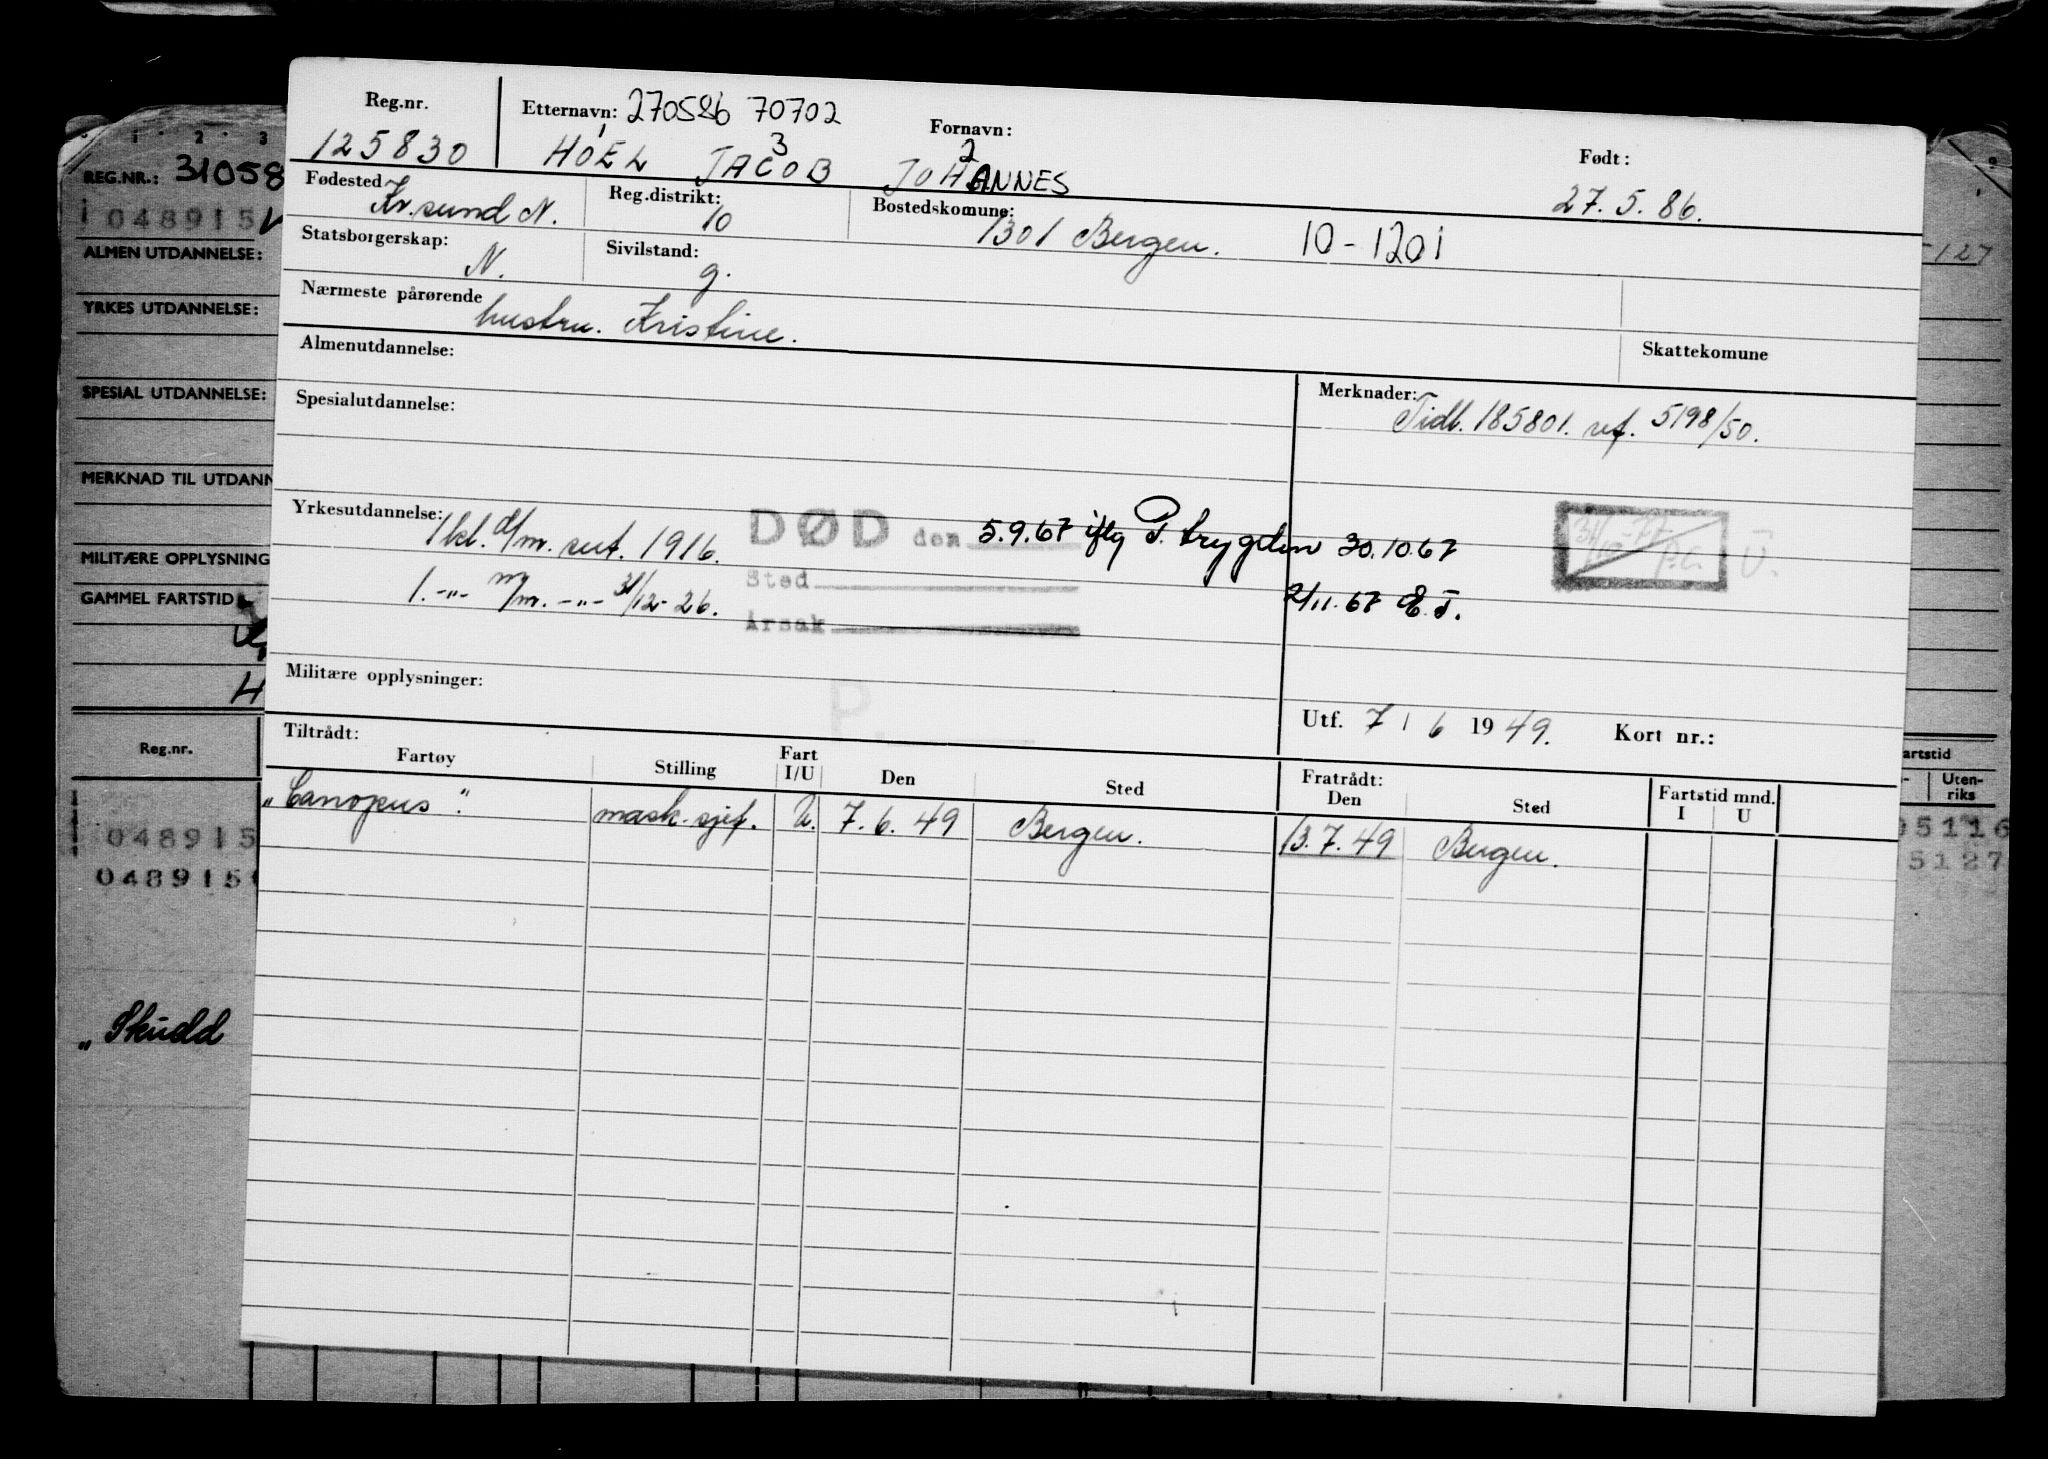 Reg.nr. Etternavn: 270586 70702 Fornavn: Født:
125830 HOEL JACOB JOHANNES 27.5.86.
1 3 2
Fødested Kr.sund N. Reg.distrikt: 10 Bostedskomune: 1301 Bergen. 10-1201
Statsborgerskap: N. Sivilstand: g.
Nærmeste pårørende hustru. Kristine.
Skattekomune
Almenutdannelse:
Merknader: Tidl. 185801. ref. 5198/50.
Spesialutdannelse:
Yrkesutdannelse: 1 kl. d/m. sert. 1916.
DØD den 5.9.67 iflg P. trygden 30.10.67
1. -"- m/m. -"- 31/12-26.
Sted
2/11.67 E.T.
Årsak
P.C. Ü.
Militære opplysninger:
P.
Utf. 7 / 6 1949. Kort nr.:
Tiltrådt: Fratrådt:
Fartøy Stilling Fart I/U Den Sted Den Sted Fartstid mnd. I U
"Canopus". mask.sjef. U. 7.6.49 Bergen. 13.7.49 Bergen.
1 2 3
REG.NR.: 31058
048915
ALMEN UTDANNELSE:
127
YRKES UTDANNELSE:
SPESIAL UTDANNELSE:
MERKNAD TIL UTDANN
MILITÆRE OPPLYSNING
GAMMEL FARTSTID
H
Reg.nr. artstid
Uten-
riks
048915 05116
048915 5127
"Skudd